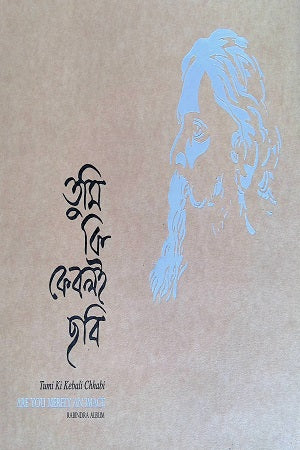 তুমি
কি
কেবলই
ছবি
Tumi Ki Kebali Chhabi
ARE YOU MERELY AN IMAGE
RABINDRA ALBUM